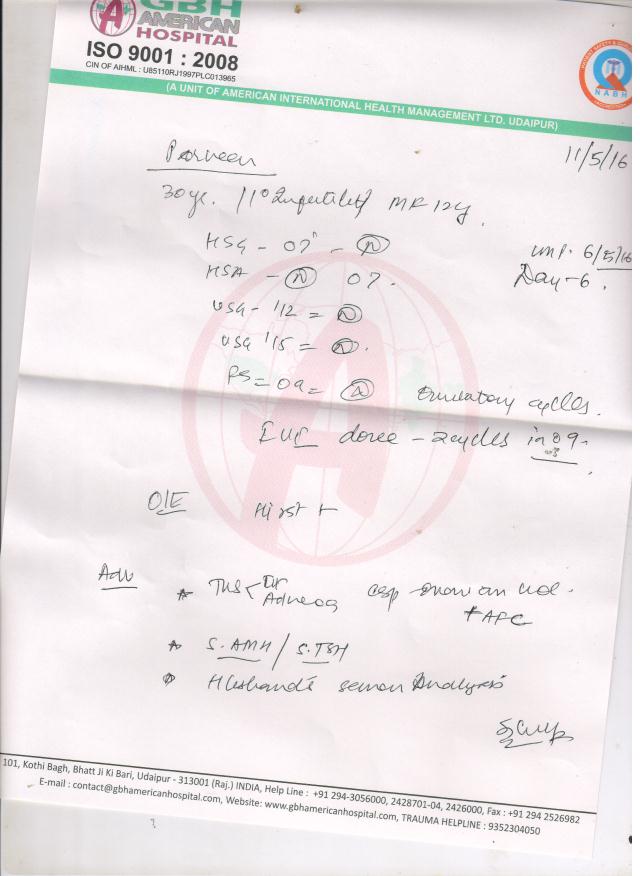 GBH
AMERICAN
HOSPITAL
ISO 9001 : 2008
CIN OF AIHML : U85110RJ1997PLC013965
NABH
(A UNIT OF AMERICAN INTERNATIONAL HEALTH MANAGEMENT LTD. UDAIPUR)
11/5/16
30 yr. / 1° Infertility MF 12y.
HSG - 07 - N
LMP. 6/5/16
HSA - N 07.
Day-6.
USG - 1/12 = N
USG 1/15 = N.
PS = 09 = N ovulatory cycles.
IUI done - 2 cycles in 09.
O/E
Adv
* TVS
* S. AMH / S. TSH
* Husband's semen Analysis
101, Kothi Bagh, Bhatt Ji Ki Bari, Udaipur - 313001 (Raj.) INDIA, Help Line : +91 294-3056000, 2428701-04, 2426000, Fax : +91 294 2526982
E-mail : contact@gbhamericanhospital.com, Website: www.gbhamericanhospital.com, TRAUMA HELPLINE : 9352304050